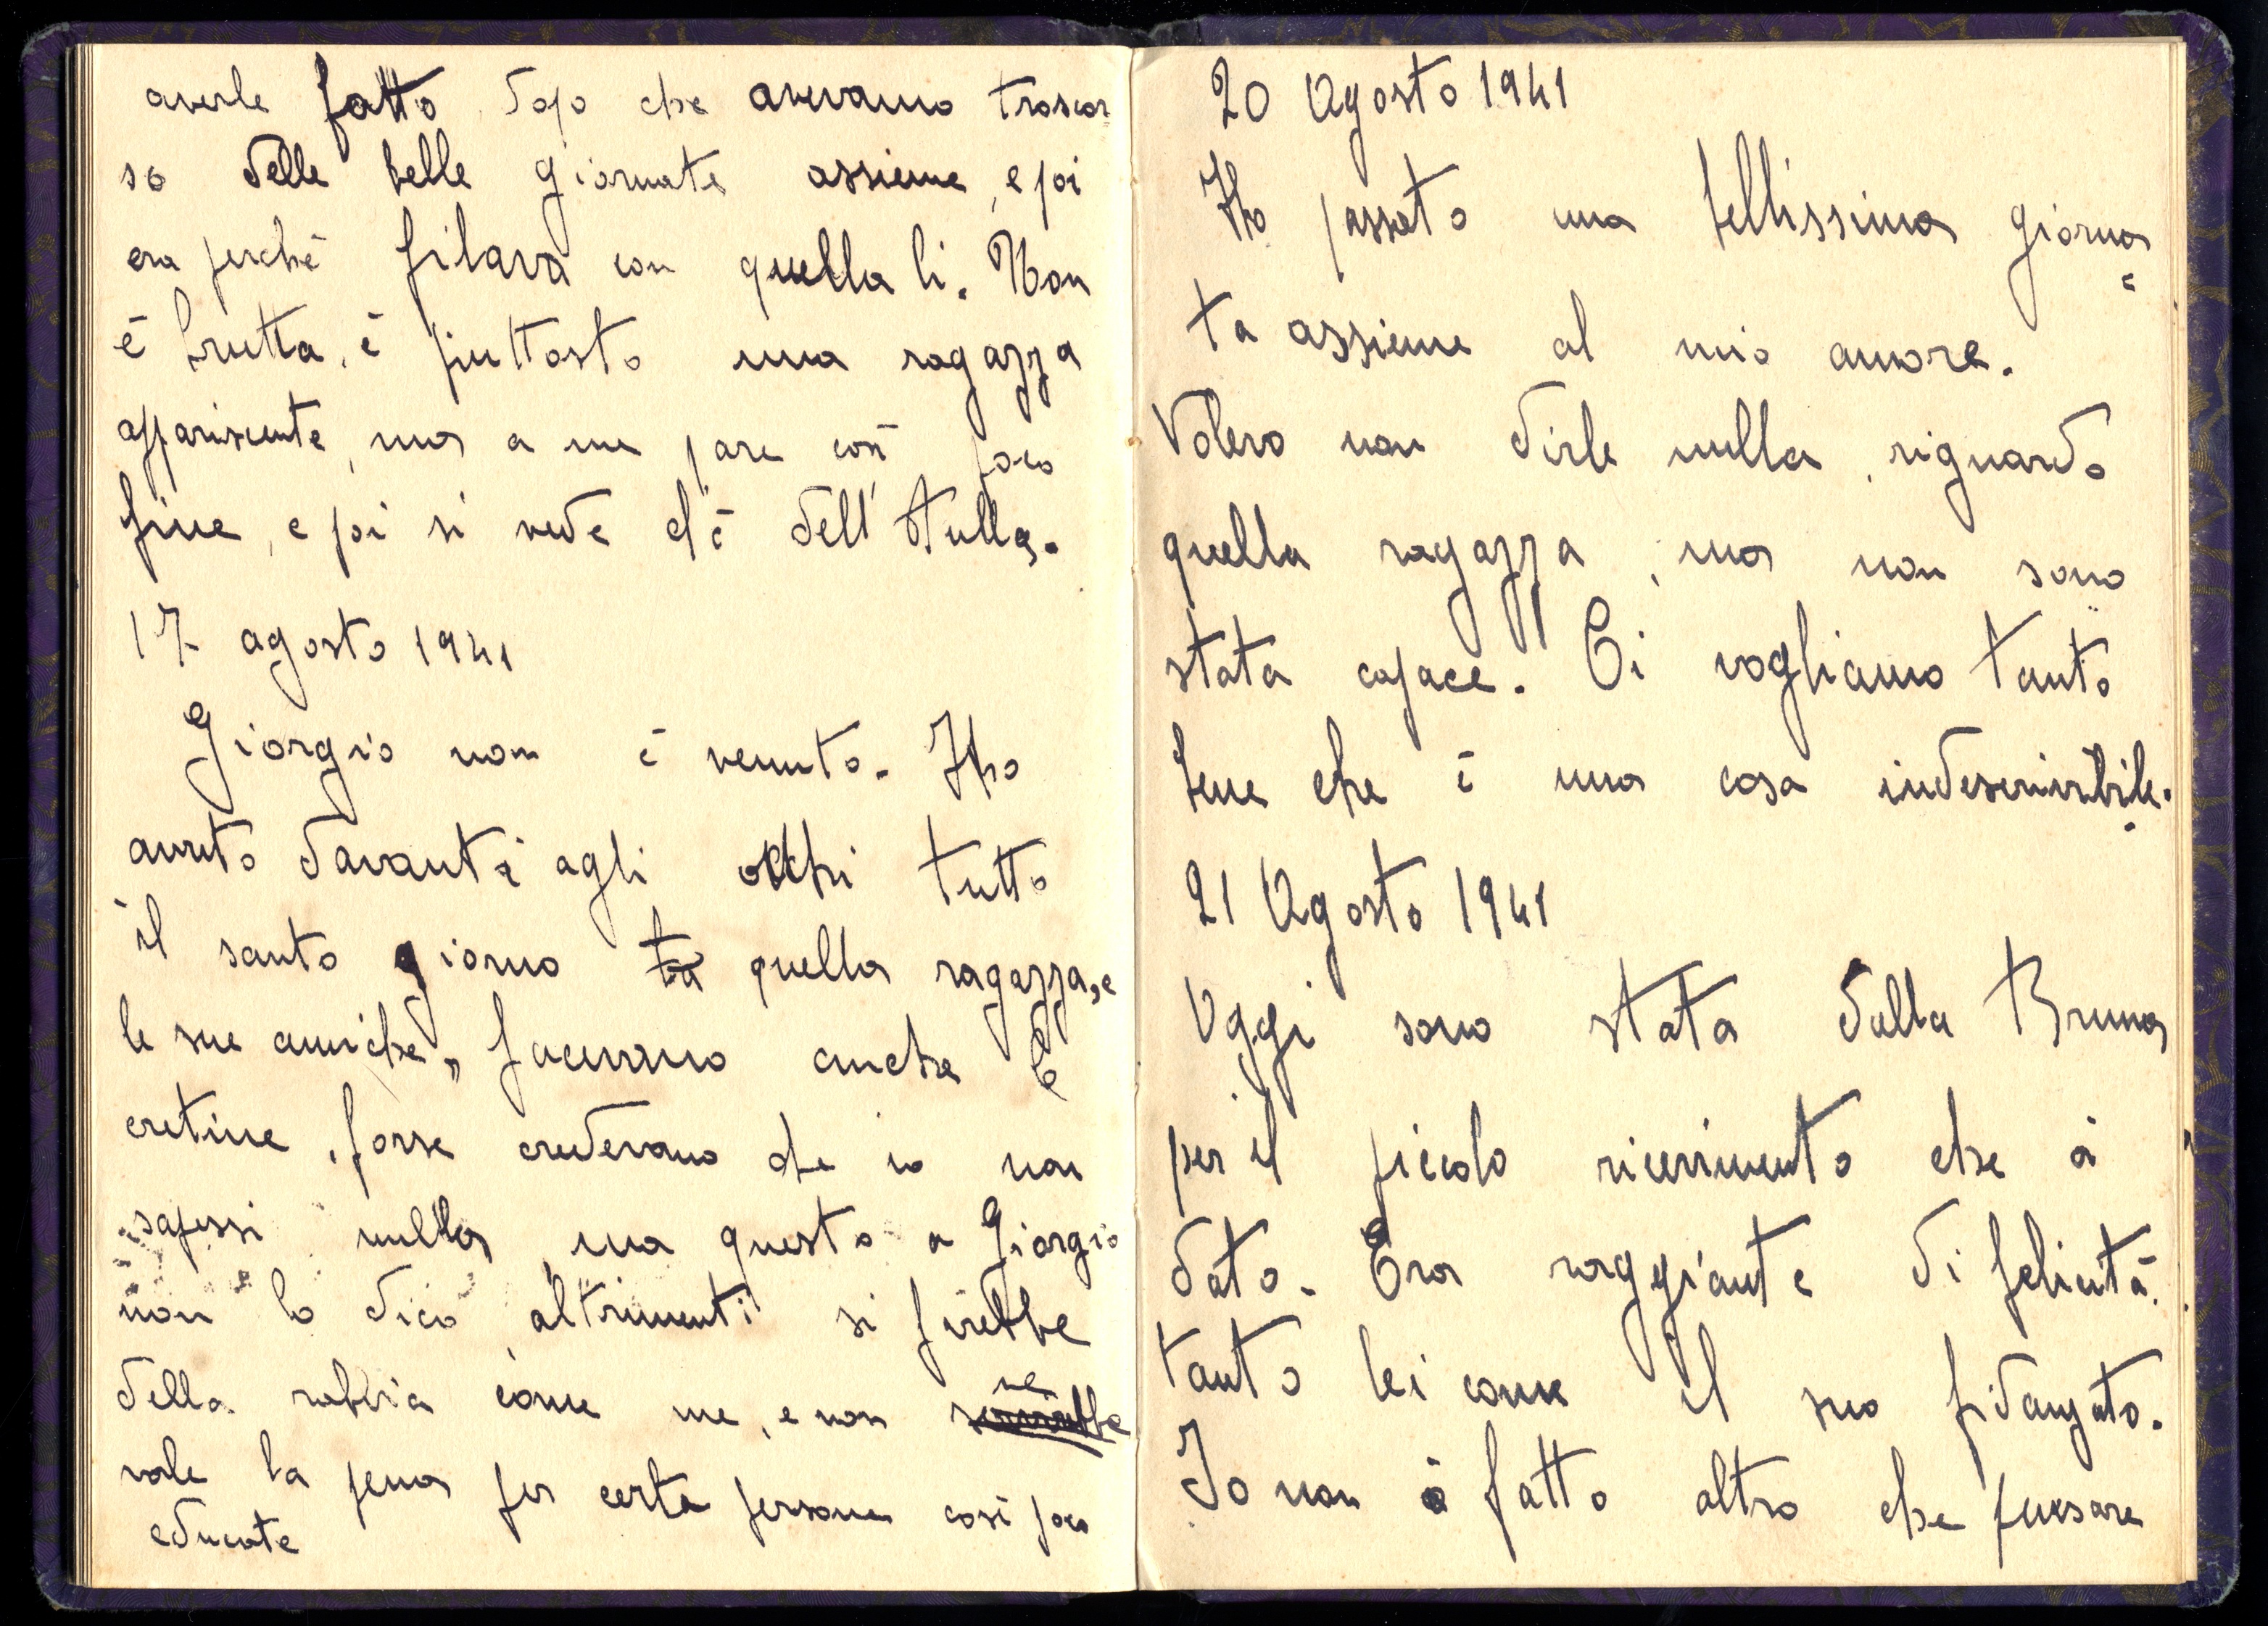 averle fatto, dopo che avevamo trascor=
so delle belle giornate assieme, e poi
era perché filava con quella li. Non
è brutta, è piuttosto una ragazza
appariscente, ma a me pare così poco
fine, e poi si vede ch'è dell'
17 agosto 1941
Giorgio non è venuto. Ho
avuto davanti agli occhi tutto
il santo giorno quella ragazza, e
le sue amiche, facevano anche le
cretine, forse credevano che io non
sapessi nulla, ma questo a Giorgio
non lo dico, altrimenti si
della rabbia come me, e non ne
vale la pena per certe persone così poco
educate
20 Agosto 1941
Ho passato una bellissima giorna
=
ta assieme al mio amore.
Volevo non dirle nulla, riguardo
quella ragazza, ma non sono
stata capace. Ci vogliamo tanto
bene che è una cosa indescrivibile.
21 Agosto 1941
Oggi sono stata dalla Bruna
per il piccolo ricevimento che à
dato. Era raggiante di felicità.
tanto lei come il suo fidanzato.
Io non ò fatto altro che pensare